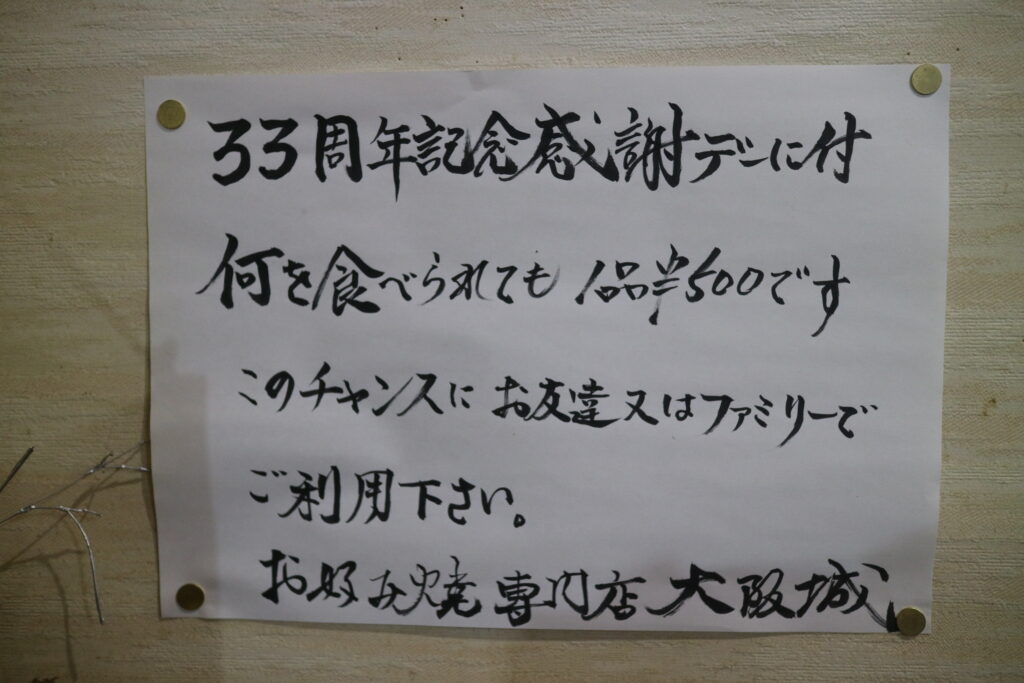 33周年記念感謝デーに付
何を食べられても1品半500です
このチャンスにお友達又はファミリーで
ご利用下さい。
お好み焼専門店大阪城